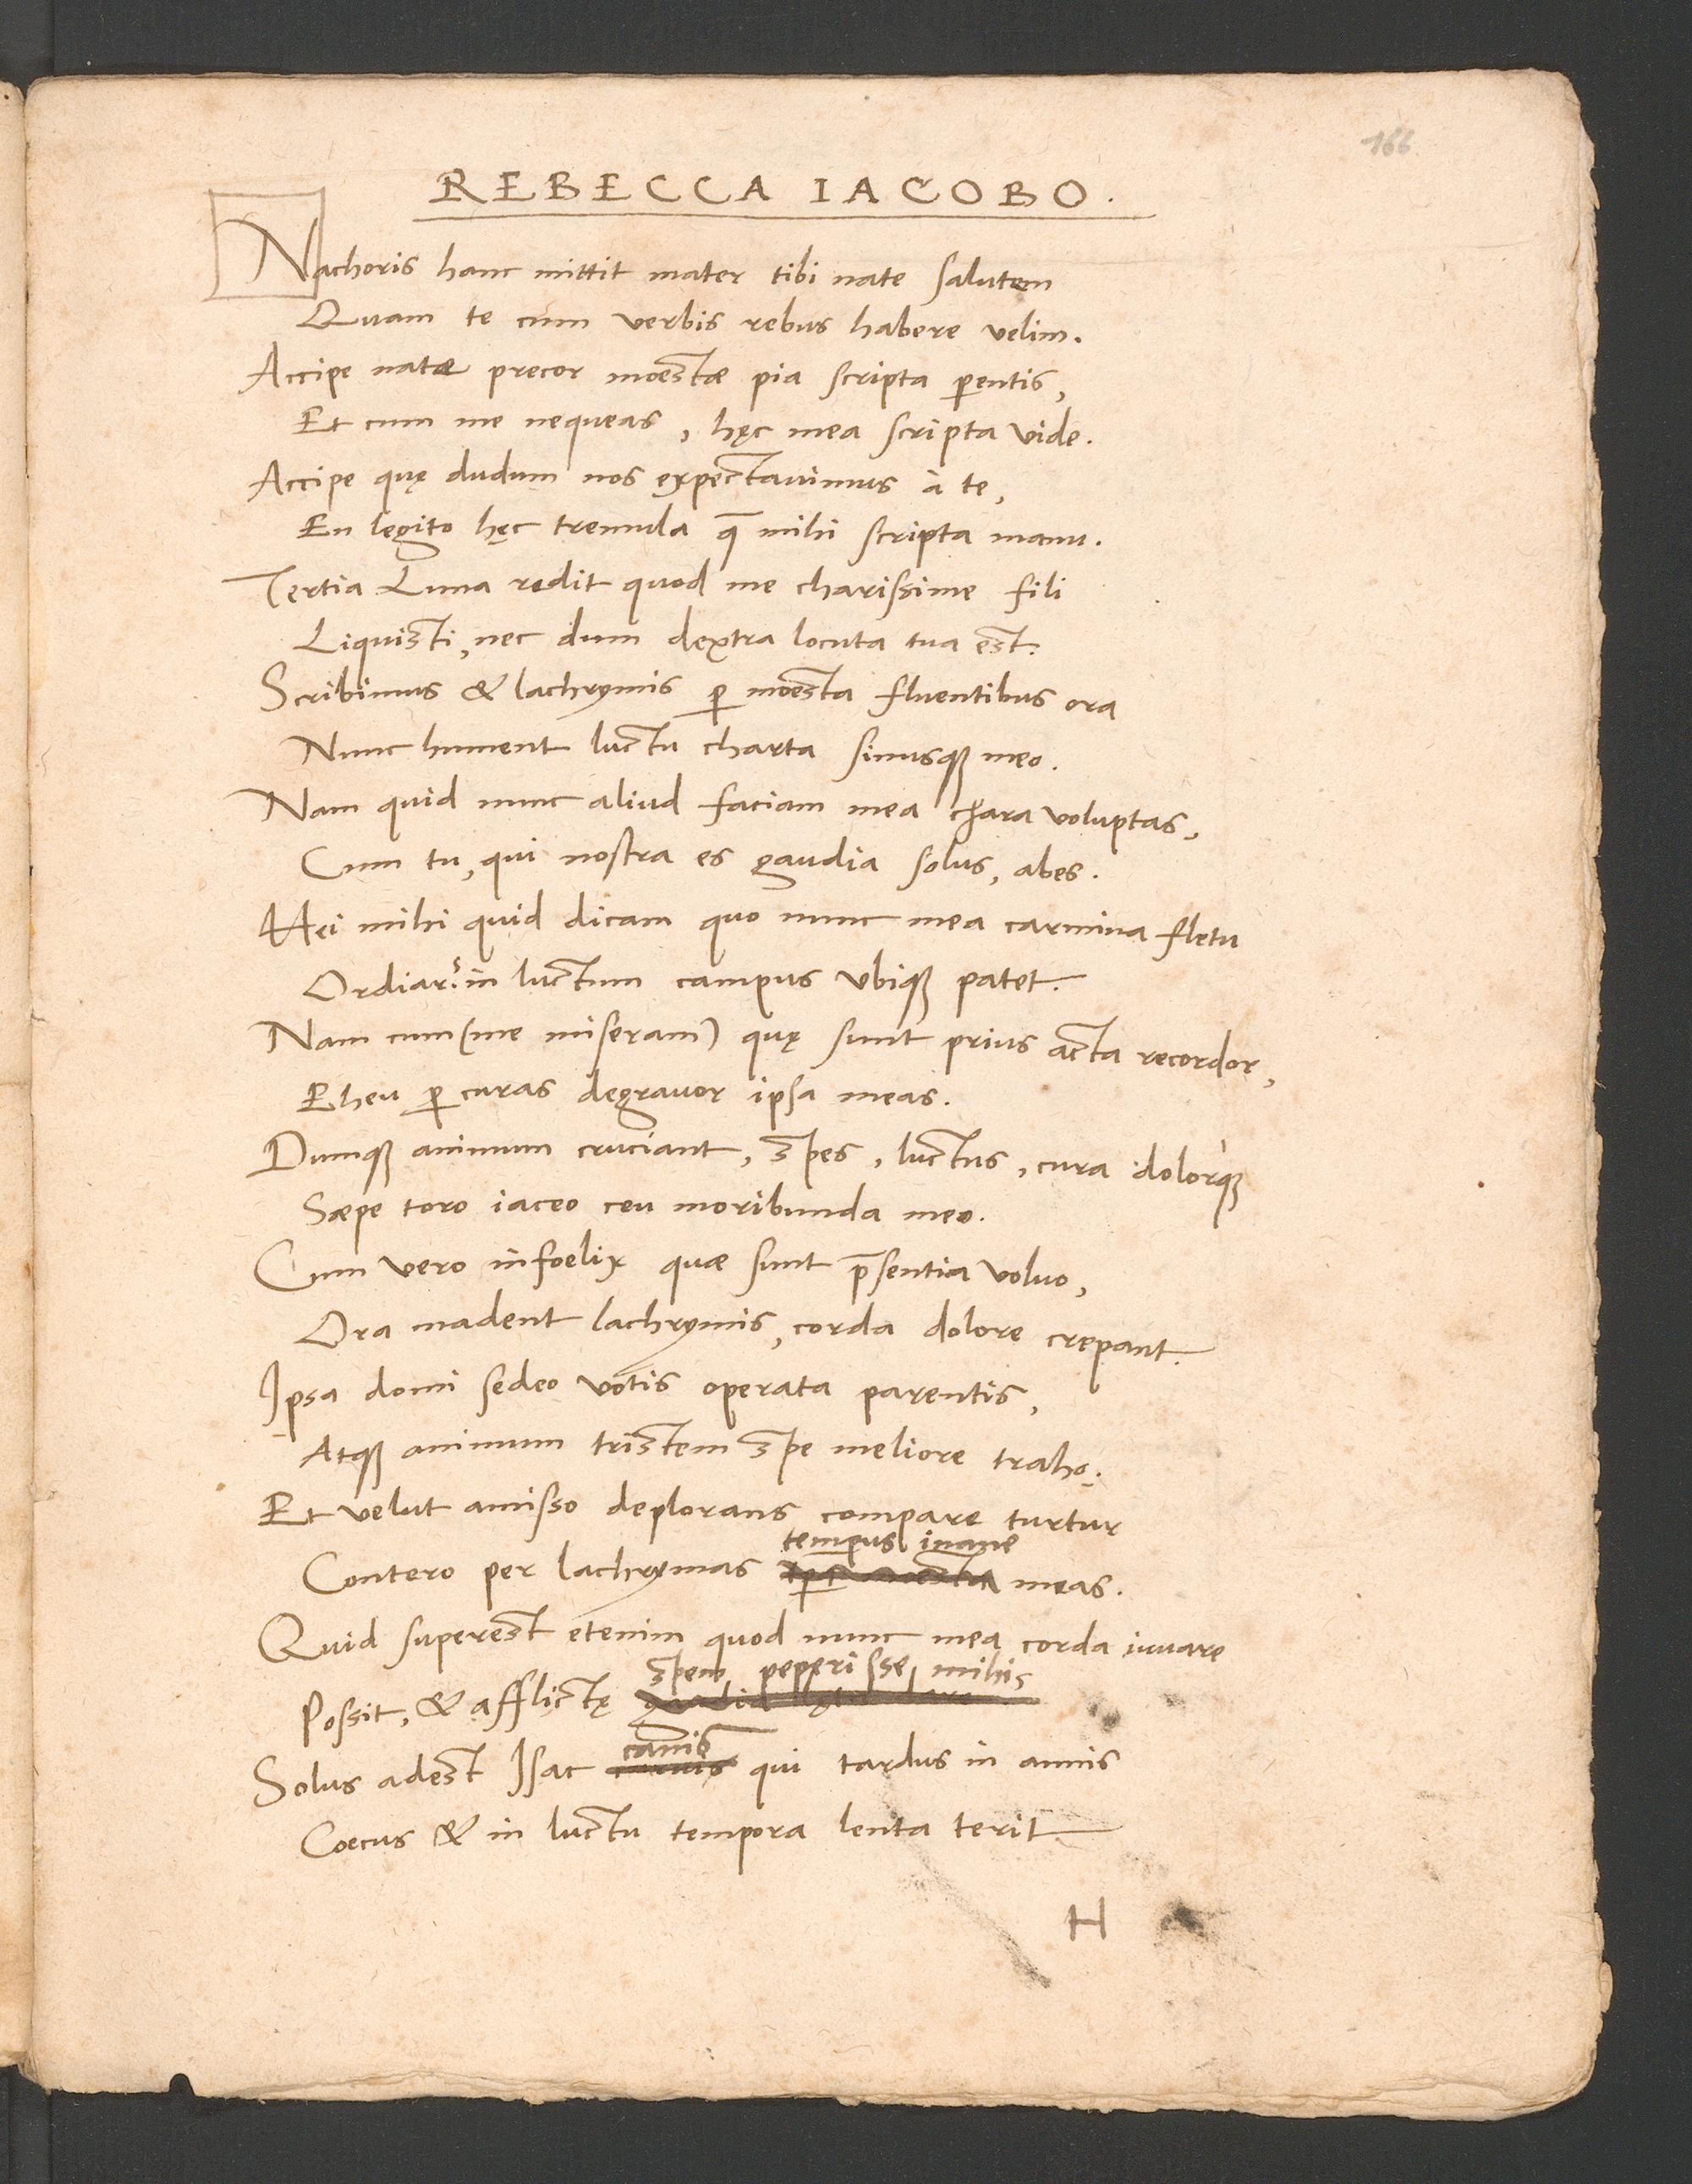 166
REBECCA IACOBO.
Nachoris hanc mittit mater tibi nate salutem
Quam te cum verbis rebus habere velim.
Accipe natæ precor mœstæ pia scripta pentis,
Et cum me nequeas, hęc mea scripta vide.
Accipe quę dudum nos expectauimus à te,
En legito hęc tremula q̄ mihi scripta manu.
Tertia Luna redit quod me charissime fili
Liquisti, nec dum dextra locuta tua est.
Scribimus & lachrymis p mœsta fluentibus ora
Nunc hument luctu charta sinusqꝫ meo.
Nam quid nunc aliud faciam mea chara voluptas,
Cum tu, qui nostra es gaudia solus, abes.
Hei mihi quid dicam quo nunc mea carmina fletu
Ordiar? in luctum campus vbiqꝫ patet.
Nam cum (me miseram) quę sunt prius acta recordor,
Eheu p curas degrauor ipsa meas.
Dumqꝫ animum cruciant, spes, luctus, cura dolorqꝫ
Sæpe toro iaceo ceu moribunda meo.
Cum vero infoelix quæ sunt p̄sentia voluo,
Ora madent lachrymis, corda dolore crepant.
Ipsa domi sedeo votis operata parentis,
Atqꝫ animum tristem spe meliore traho.
Et velut amisso deplorans compare turtur
tempus inane
Contero per lachrymas meas.
Quid superest etenim quod nunc mea corda iuuare
spem peperisse mihi
Possit, & afflictę
canis
Solus adest Isac qui tardus in annis
Coecus & in luctu tempora lenta terit
H